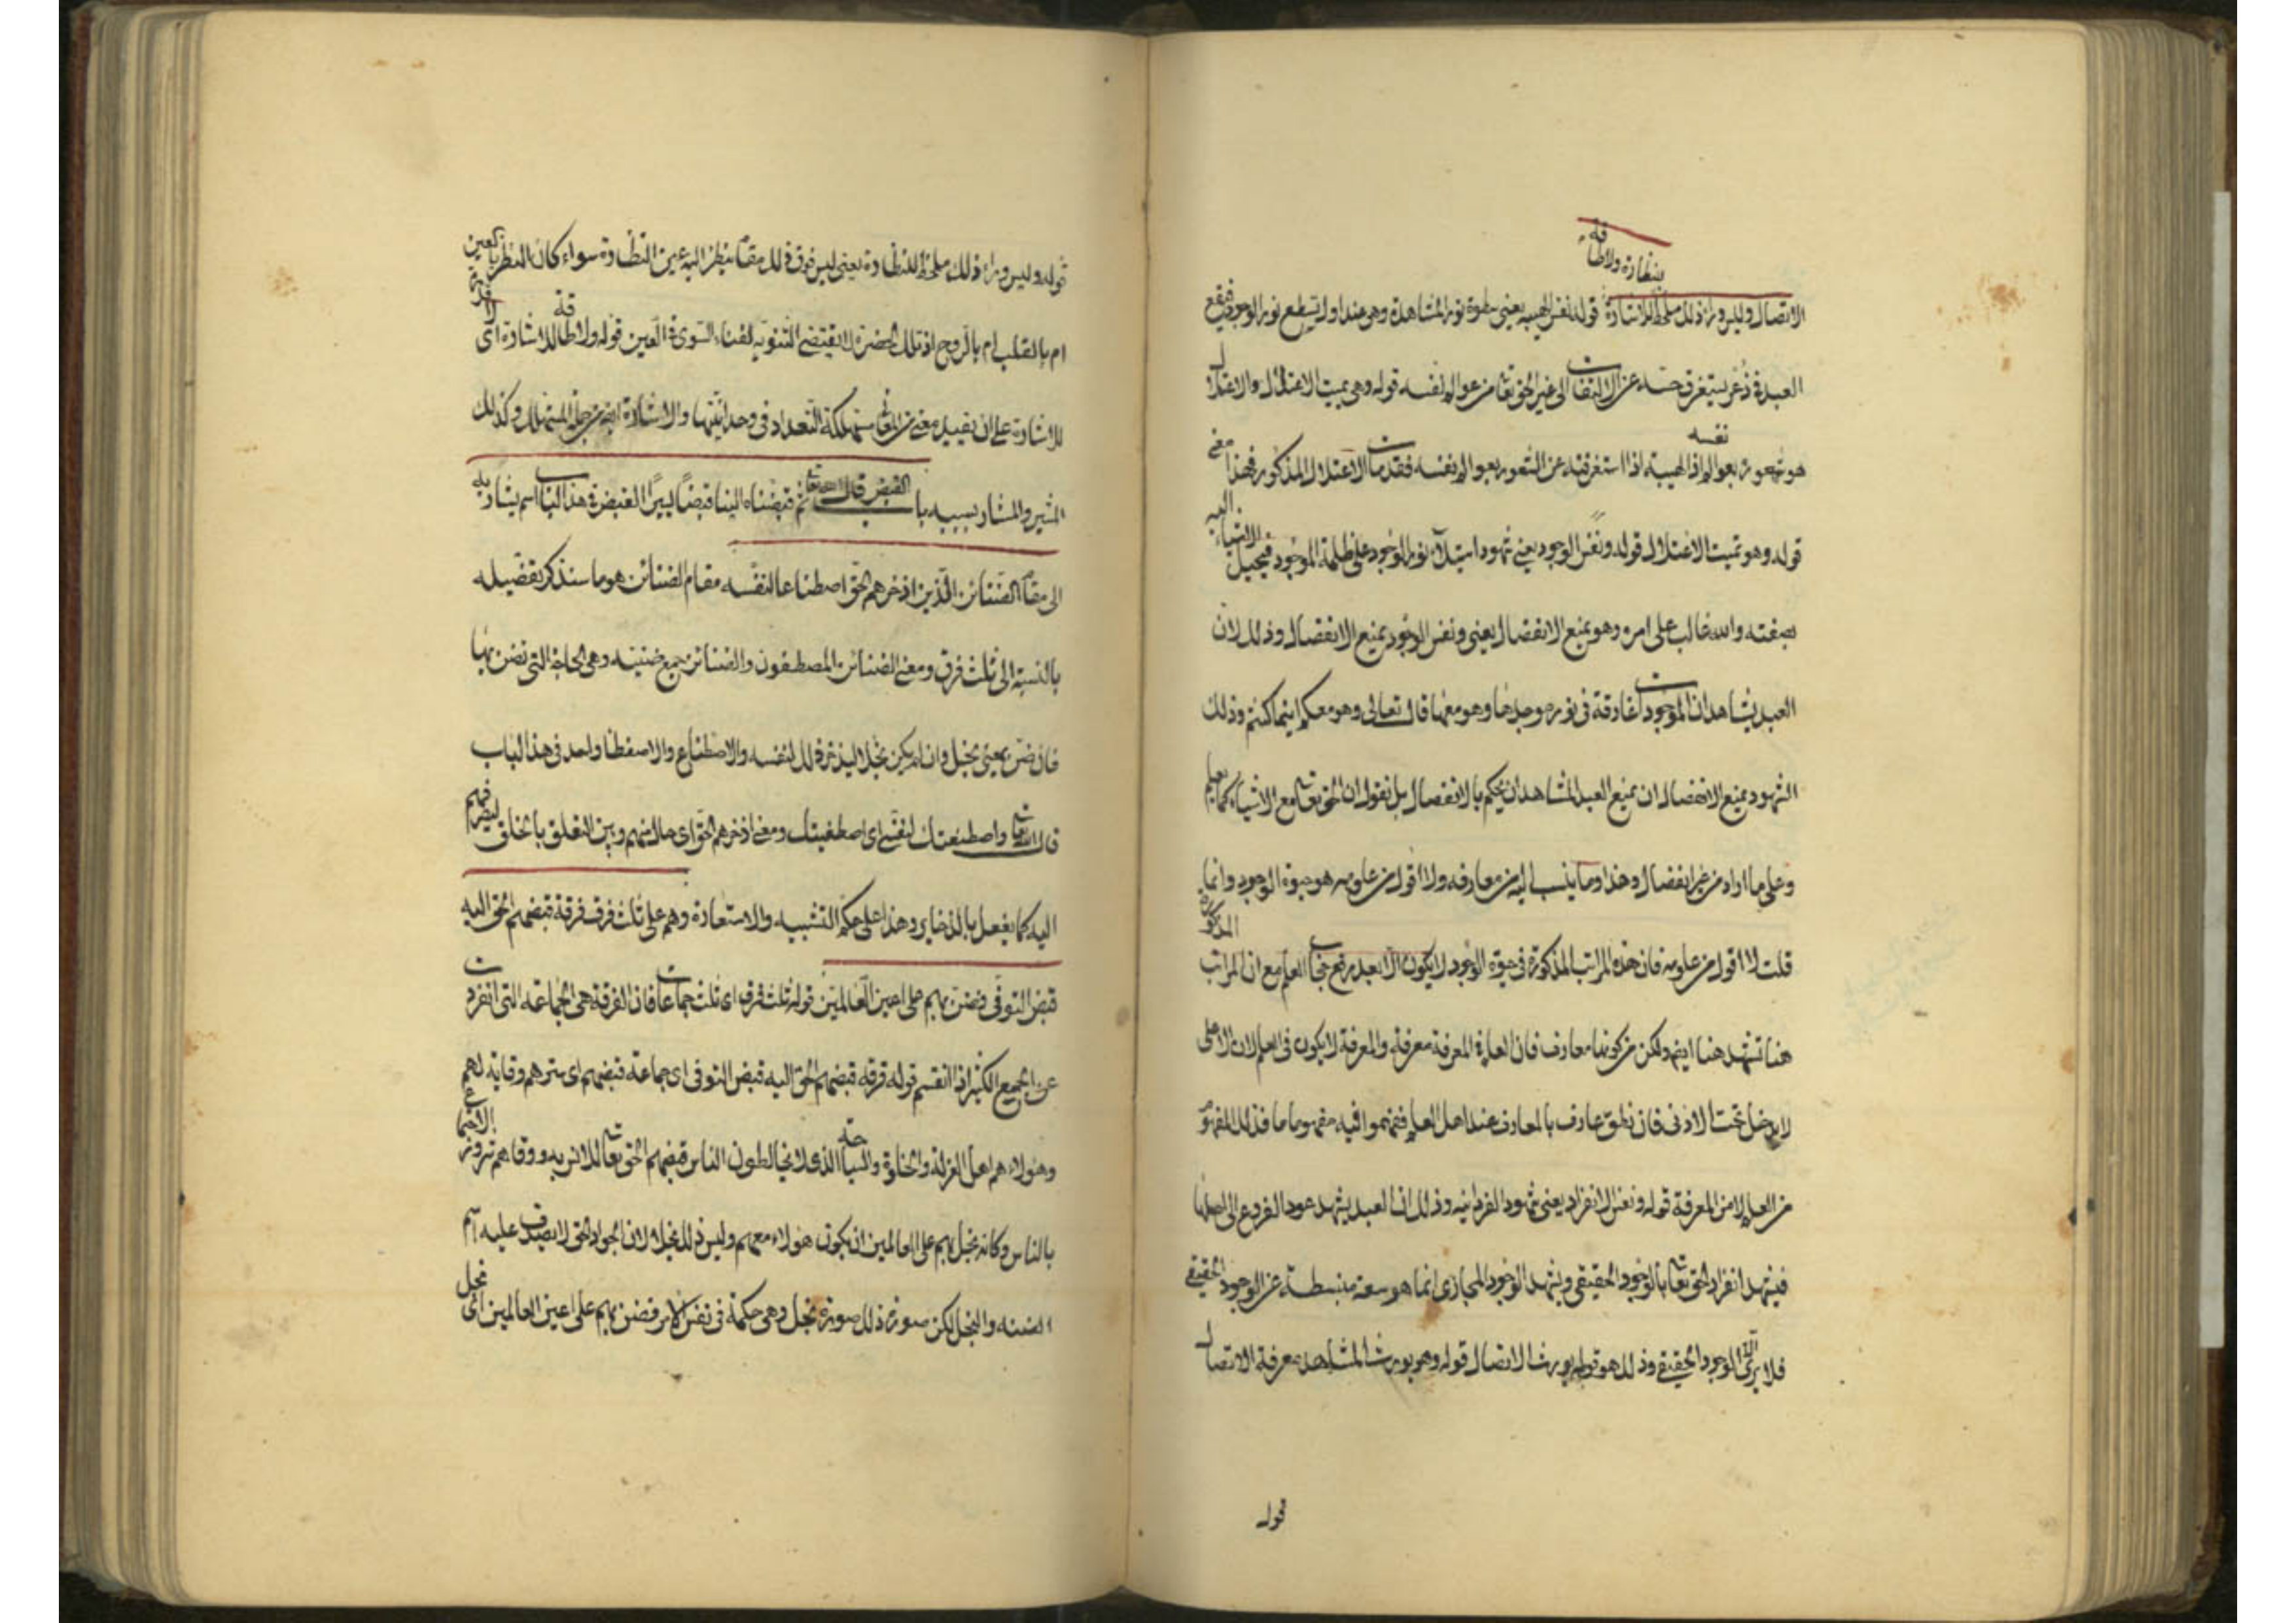 بنظارة ولا طاقة
الاتصال وليس وراء ذلك ملحظ للاشارة قوله نفس الهيبة يعنى سطوة نور المشاهدة وهى عند اول تسطع نور الوجود فيقع
العبد فى ذعر يستغرق حسه عن الالتفات الى غير الحق تعا من عوالم نفسه قوله وهى تميت الاعتلال والاعتلال
هو شعوره بعوالم نفسه اذ الهيبة اذا استغرقته عن الشعور بعوالم نفسه فقد مات الاعتلال المذكور فهذا معنى
قوله وهو تميت الاعتلال قوله ونفس الوجود يعنى شهود استيلاء نور الوجود على ظلمة الموجود فيحيل الاشياء اليه
بصفته والله غالب على امره وهو يمنع الانفصال يعنى ونفس الوجود يمنع الانفصال وذلك لان
العبد يشاهد ان الموجودات غارقة فى نور موجدها وهو معها قال تعالى وهو معكم اينما كنتم وذلك
الشهود يمنع الانفصال ان يمنع العبد المشاهد ان يحكم بالانفصال بل نقول ان الحق تعا مع الاشياء كما يعلم
وعلى ما اراد من غير انفصال وهذا وما ينسب اليه من معارفه ولا اقول من علومه هو حيوة الوجود وانما
قلت لا اقول من علومه فان هذه المراتب المذكورة فى حيوة الوجود لا يكون الا بعد رفع حجاب العلم مع ان المراتب المذكورة
هنا تشهد هنا ايضا ولكن من كونها معارف فان العلم فى المعرفة معرفة والمعرفة لا يكون فى العلم لان الاعلى
لا يدخل تحت الادنى فان نطق عارف بالمعارف عند اهل العلم ففهموا فيه مفهوما ما فذلك المفهوم
من العلم لا من المعرفة قوله ونفس الانفراد يعنى شهود الفردانيه وذلك ان العبد يشهد عود الفروع الى اصلها
فيشهد انفراد الحق تعا بالوجود الحقيقى ويشهد الوجود المجازى انما هو سعة منبسطة عن الوجود الحقيقى
فلا يرى الا الوجود الحقيقى وذلك هو قوله يورث الاتصال قوله وهو يورث المشاهد معرفة الاتصال
قوله
قوله وليس وراء ذلك ملحظ للنظارة يعنى ليس فوق ذلك مقام ينظر اليه عين النظارة سواء كان النظر بالعين
ام بالقلب ام بالروح اذ تلك الحضرة لا يقتضى الثنوية لفناء السوى فى العين قوله ولا طاقة للاشارة اى لا قدرة
للاشارة على ان يقيد معنى من المعانى مستهلكة التعداد فى وحدانيتها والاشارة ايضا من جملة المستهلك وكذلك
المشير والمشار بسببه باب القبض قال الله تعا ثم قبضناه الينا قبضا يسيرا القبض فى هذا الباب اسم يشار به
الى مقام الضنائن الذين ادخرهم الحق اصطناعا لنفسه مقام الضنائن هو ما سنذكر تفصيله
بالنسبة الى ثلث فرق ومعنى الضنائن المصطفون والضنائن جمع ضنينه وهى الحاجة التى تضن بها
فان ضن بمعنى بخل وان لم يكن بخلا ليذخر ذلك لنفسه والاصطناع والاصطفا واحد فى هذا الباب
قال الله تعا واصطنعتك لنفسى اى اصطفيتك ومعنى ادخرهم الحق اى حال بينهم وبين التعلق بالخلق ليصرفهم
اليه كما يفعل بالذخاير وهذا على حكم التشبيه والاستعارة وهم على ثلث فرق فرقة قبضهم الحق اليه
قبض التوفى وضن بهم على اعين العالمين قوله ثلث فرق اى ثلث جماعات فان الفرقة هى الجماعة التى انفردت
عن الجمع الكثير اذا انقسم قوله فرقة قبضهم الحق اليه قبض التوفى اى جماعة قبضهم اى سترهم وقاية لهم
وهؤلاء هم اهل العزلة والخلوة والسياحة الذى لا يخالطون الناس قبضهم الحق تعا للانس به ووقاهم شرور الاجتماع
بالناس وكانه بخل بهم على العالمين ان يكون هؤلاء معهم وليس ذلك بخلا لان الجواد الحق لا يصدق عليه اسم
الضنه والبخل لكن صورة ذلك صورة بخل وهى حكمة فى نفس الامر فضن بهم على اعين العالمين اى بخل